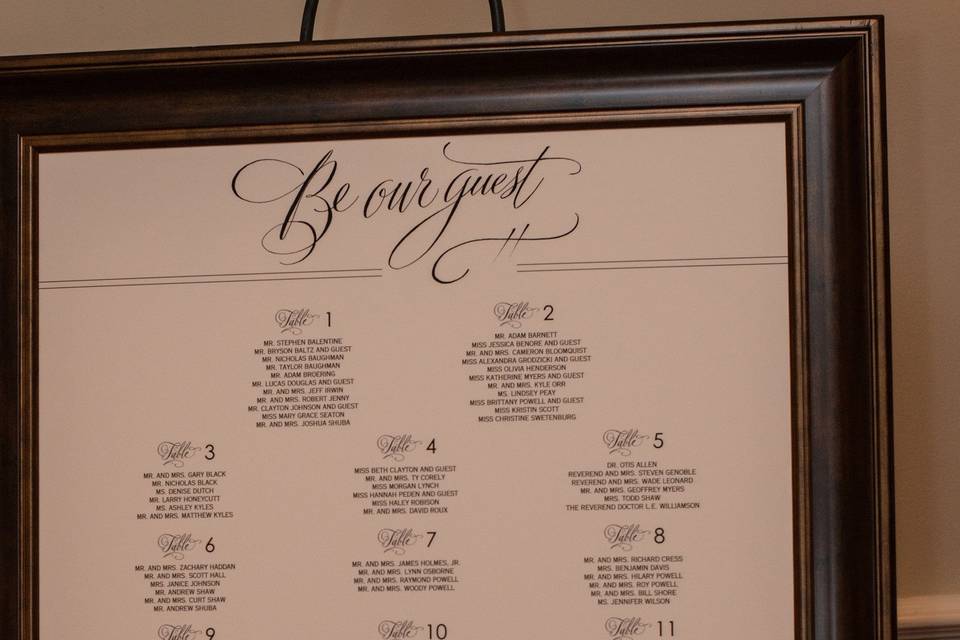 Be our guest
Table 1
MR. STEPHEN BALENTINE
MR. BRYSON BALTZ AND GUEST
MR. NICHOLAS BAUGHMAN
MR. TAYLOR BAUGHMAN
MR. ADAM BROERING
MR. LUCAS DOUGLAS AND GUEST
MR. AND MRS. JEFF IRWIN
MR. AND MRS. ROBERT JENNY
MR. CLAYTON JOHNSON AND GUEST
MISS MARY GRACE SEATON
MR. AND MRS. JOSHUA SHUBA
Table 2
MR. ADAM BARNETT
MISS JESSICA BENORE AND GUEST
MR. AND MRS. CAMERON BLOOMQUIST
MISS ALEXANDRA GRODZICKI AND GUEST
MISS OLIVIA HENDERSON
MISS KATHERINE MYERS AND GUEST
MR. AND MRS. KYLE ORR
MS. LINDSEY PEAY
MISS BRITTANY POWELL AND GUEST
MISS KRISTIN SCOTT
MISS CHRISTINE SWETENBURG
Table 3
MR. AND MRS. GARY BLACK
MR. NICHOLAS BLACK
MS. DENISE DUTCH
MR. LARRY HONEYCUTT
MS. ASHLEY KYLES
MR. AND MRS. MATTHEW KYLES
Table 4
MISS BETH CLAYTON AND GUEST
MR. AND MRS. TY CORELY
MISS MORGAN LYNCH
MISS HANNAH PEDEN AND GUEST
MISS HALEY ROBISON
MR. AND MRS. DAVID ROUX
Table 5
DR. OTIS ALLEN
REVEREND AND MRS. STEVEN GENOBLE
REVEREND AND MRS. WADE LEONARD
MR. AND MRS. GEOFFREY MYERS
MRS. TODD SHAW
THE REVEREND DOCTOR L.E. WILLIAMSON
Table 6
MR. AND MRS. ZACHARY HADDAN
MR. AND MRS. SCOTT HALL
MRS. JANICE JOHNSON
MR. ANDREW SHAW
MR. AND MRS. CURT SHAW
MR. ANDREW SHUBA
Table 7
MR. AND MRS. JAMES HOLMES, JR.
MR. AND MRS. LYNN OSBORNE
MR. AND MRS. RAYMOND POWELL
MR. AND MRS. WOODY POWELL
Table 8
MR. AND MRS. RICHARD CRESS
MRS. BENJAMIN DAVIS
MR. AND MRS. HILARY POWELL
MR. AND MRS. ROY POWELL
MR. AND MRS. BILL SHORE
MS. JENNIFER WILSON
Table 9
Table 10
Table 11